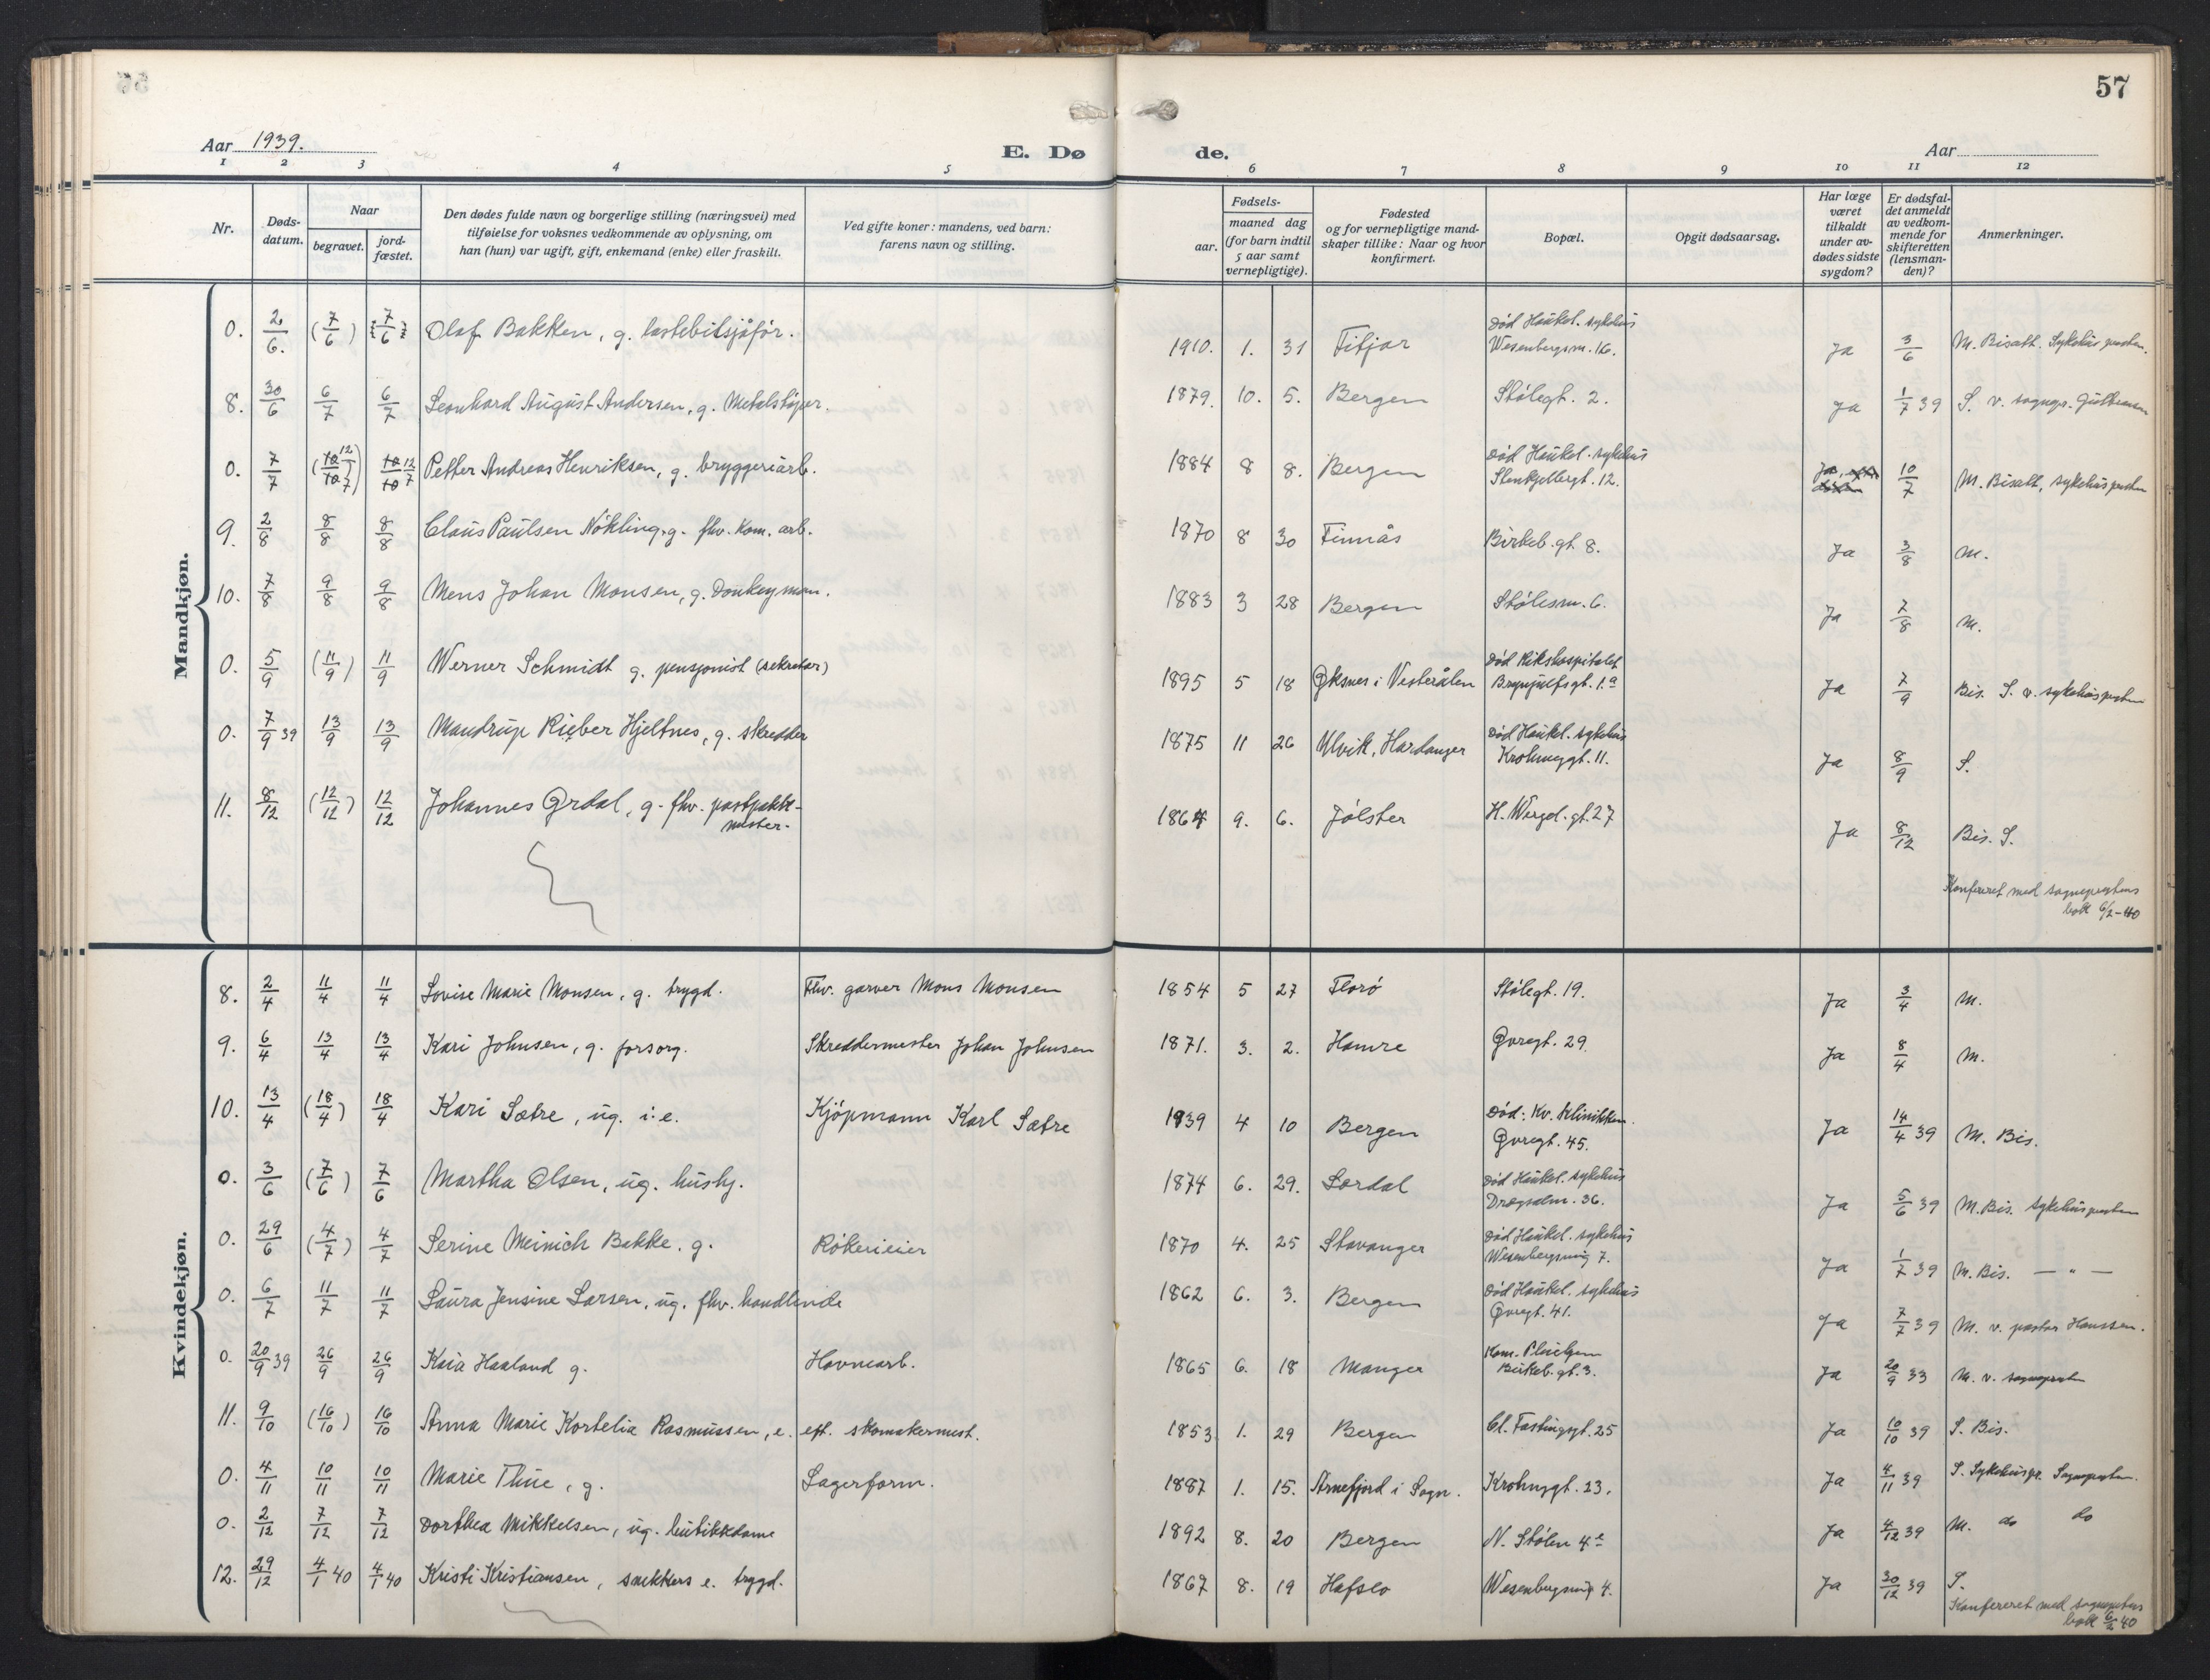 57
Aar 1939.
E. Dø de.
Aar
1 2 3 4 5 6 7 8 9 10 11 12
Nr.
Døds-datum.
Naar
begravet.
jord-fæstet.
Den dødes fulde navn og borgerlige stilling (næringsvei) med
tilføielse for voksnes vedkommende av oplysning, om
han (hun) var ugift, gift, enkemand (enke) eller fraskilt.
Ved gifte koner: mandens, ved barn:
farens navn og stilling.
Fødsels-
aar.
maaned dag
(for barn indtil
5 aar samt
vernepligtige).
Fødested
og for vernepligtige mand-
skaper tillike: Naar og hvor
konfirmert.
Bopæl.
Opgit dødsaarsag.
Har læge
været
tilkaldt
under av-
dødes sidste
sygdom?
Er dødsfal-
det anmeldt
av vedkom-
mende for
skifteretten
(lensman-
den)?
Anmerkninger.
Mandkjøn.
0. 2/6. (7/6) 7/6 Olaf Bakken, g. lastebilsjåfør. 1910. 1. 31 Fitjar Død Haukel. sykehus Wesenbergsm. 16. Ja 3/6 M. Bisatt. Sykehuspresten.
8. 30/6 6/7 6/7 Leonhard August Andersen, g. Metalstøper. 1879. 10. 5. Bergen Stølegt. 2. Ja 1/7 39 S. v. sognepr. Gulbransen
0. 7/7 (12/7) 12/7 Petter Andreas Henriksen, g. bryggeriarb. 1884 8 8. Bergen Død Haukel. sykehus Stenkjellergt. 12. Ja 10/7 M. Bisatt, sykehuspresten
9. 2/8 8/8 8/8 Claus Paulsen Nökling, g. fhv. kom. arb. 1870 8 30 Finnås Birkeb. gt. 8. Ja 3/8 M.
10. 7/8 9/8 9/8 Mons Johan Monsen, g. Donkeyman. 1883 3 28 Bergen Stølesm. 6. Ja 7/8 M.
0. 5/9 (11/9) 11/9 Werner Schmidt g. pensjonist (sekretær) 1895 5 18 Øksnes i Vesterålen Død Rikshospitalet Brynjulfsgt. 1.a Ja 7/9 Bis. S. v. sykehuspresten
0. 7/9 39 13/9 13/9 Mandrup Rieber Hjeltnes, g. skredder 1875 11 26 Ulvik, Hardanger Død Haukel. sykehus Krohnegt. 11. Ja 8/9 S.
11. 8/12 (12/12) 12/12 Johannes Ordal, g. fhv. postpakk-mester. 1864 9. 6. Jølster H. Wergel. gt. 27 Ja 8/12 Bis. S.
Konfereret med sogneprestens
bok 6/2-40
Kvindekjøn.
8. 2/4 11/4 11/4 Lovise Marie Monsen, g. trygd. Fhv. garver Mons Monsen 1854 5 27 Florø Stølegt. 19. Ja 3/4 M.
9. 6/4 13/4 13/4 Kari Johnsen, g. forsorg. Skreddermester Johan Johnsen 1871. 3. 2. Hamre Øvregt. 29. Ja 8/4 M.
10. 13/4 (18/4) 18/4 Kari Sætre, ug. i:e. Kjøpmann Karl Sætre 1939 4 10 Bergen Død: Kv. klinikken. Øvregt. 45. Ja 14/4 39 M. Bis.
0. 3/6 (7/6) 7/6 Martha Olsen, ug. hushj. 1874 6. 29. Lærdal Død Haukel. sykehus Dragsalm. 36. Ja 5/6 39 M. Bis. Sykehuspresten
0. 29/6 (4/7) 4/7 Serine Meinich Bakke. g. Røkerieier 1870 4. 25 Stavanger Død Haukel. sykehus Wesenbergsmug 7. Ja 1/7 39 M. Bis. — " —
0. 6/7 11/7 11/7 Laura Jensine Larsen, ug. fhv. handlende 1862 6. 3. Bergen Død Haukel. sykehus Øvregt. 41. Ja 7/7 39 M. v. pastor Hanssen.
0. 20/9 39 26/9 26/9 Kaia Haaland g. Havnearb. 1865 6. 18 Manger Kom. Pleiehjem Birkeb. gt. 3. Ja 20/9 33 M. v. sognepresten
11. 9/10 (16/10) 16/10 Anna Marie Kortelia Rasmussen, e. eft. skomakermest. 1853 1. 29 Bergen Cl. Fastingsgt. 25 Ja 10/10 39 S. Bis.
0. 4/11 10/11 10/11 Marie Thue, g. Lagerform. 1887 1. 15. Arnefjord i Sogn. Krohnegt. 23. Ja 4/11 39 S. Sykehuspr. Sognepresten.
0. 2/12 7/12 7/12 Dorthea Mikkelsen, ug. butikkdame 1892 8. 20 Bergen N. Stølen 4e Ja 4/12 39 M. do do
12. 29/12 4/1 40 4/1 40 Kristi Kristiansen, snekkers e. trygd. 1867 8. 19 Hafslo Wesenbergsmug 4. Ja 30/12 39 S.
Konfereret med sogneprestens
bok 6/2 40